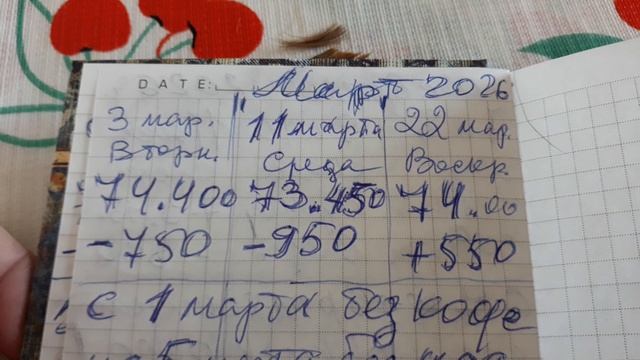 DATE: Март 2026
3 мар. 11 марта 22 мар.
Вторн. Среда Воскр.
74.400 73.450 74.00
-750 -950 +550
с 1 марта без кофе